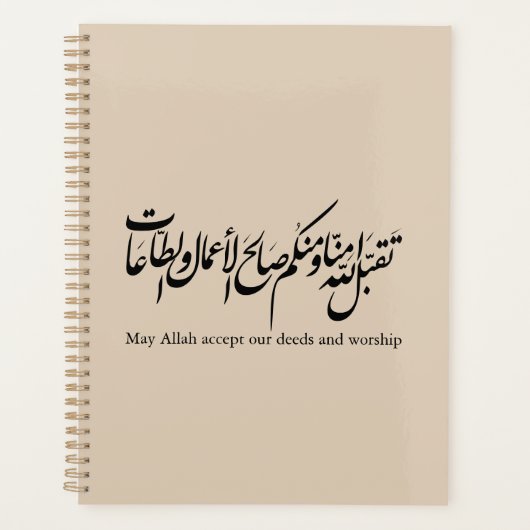 تَقبّل الله مِنّا ومنكُم صَالحَ الأعمال والطّاعَات
May Allah accept our deeds and worship